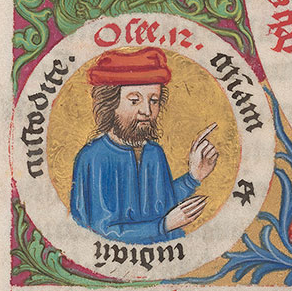 Osee. 12.
&
iudiciū
custodite.